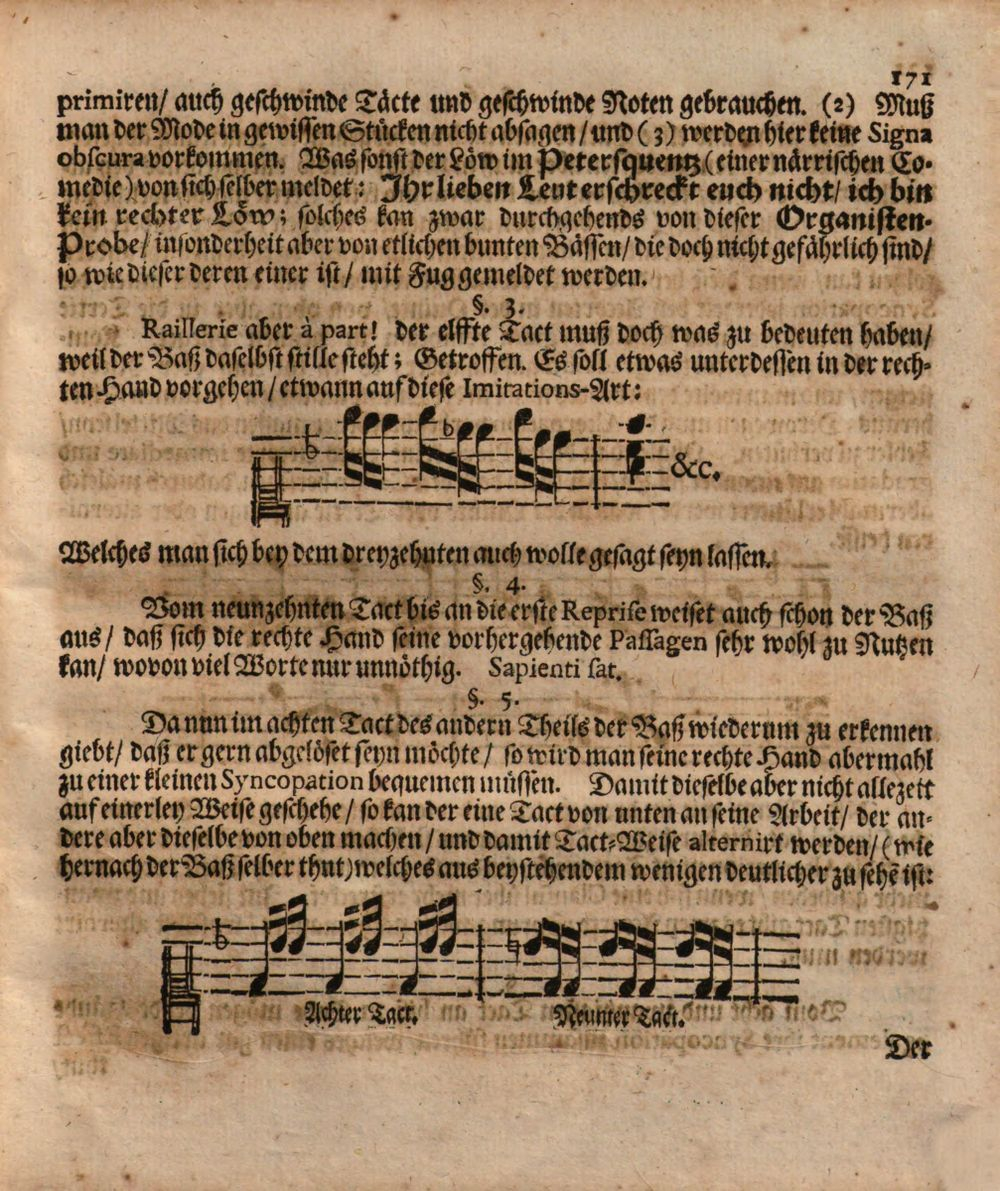 171
primiren/ auch geschwinde Täcte und geschwinde Noten gebrauchen. (2) Muß
man der Mode in gewissen Stücken nicht absagen / und (3) werden hier keine Signa
obscura vorkommen. Was sonst der Löw im Petersquentz (einer närrischen Co-
medie) von sich selber meldet: Ihr lieben Leut erschreckt euch nicht/ ich bin
kein rechter Löw; solches kan zwar durchgehends von dieser Organisten-
Probe/ insonderheit aber von etlichen bunten Bässen/ die doch nicht gefährlich sind/
so wie dieser deren einer ist / mit Fug gemeldet werden.
§. 3.
Raillerie aber à part! der elffte Tact muß doch was zu bedeuten haben/
weil der Baß daselbst stille steht; Getroffen. Es soll etwas unterdessen in der rech-
ten Hand vorgehen / etwann auf diese Imitations-Art:
&c.
Welches man sich bey dem dreyzehnten auch wolle gesagt seyn lassen.
§. 4.
Vom neunzehnten Tact bis an die erste Reprise weiset auch schon der Baß
aus / daß sich die rechte Hand seine vorhergehende Passagen sehr wohl zu Nutzen
kan/ wovon viel Worte nur unnöthig. Sapienti sat.
§. 5.
Da nun im achten Tact des andern Theils der Baß wiederum zu erkennen
giebt/ daß er gern abgelöset seyn möchte / so wird man seine rechte Hand abermahl
zu einer kleinen Syncopation bequemen müssen. Damit dieselbe aber nicht allezeit
auf einerley Weise geschehe / so kan der eine Tact von unten an seine Arbeit / der an-
dere aber dieselbe von oben machen / und damit Tact-Weise alternirt werden/ (wie
hernach der Baß selber thut) welches aus beystehendem wenigen deutlicher zu sehē ist:
Achter Tact. Neunter Tact.
Der